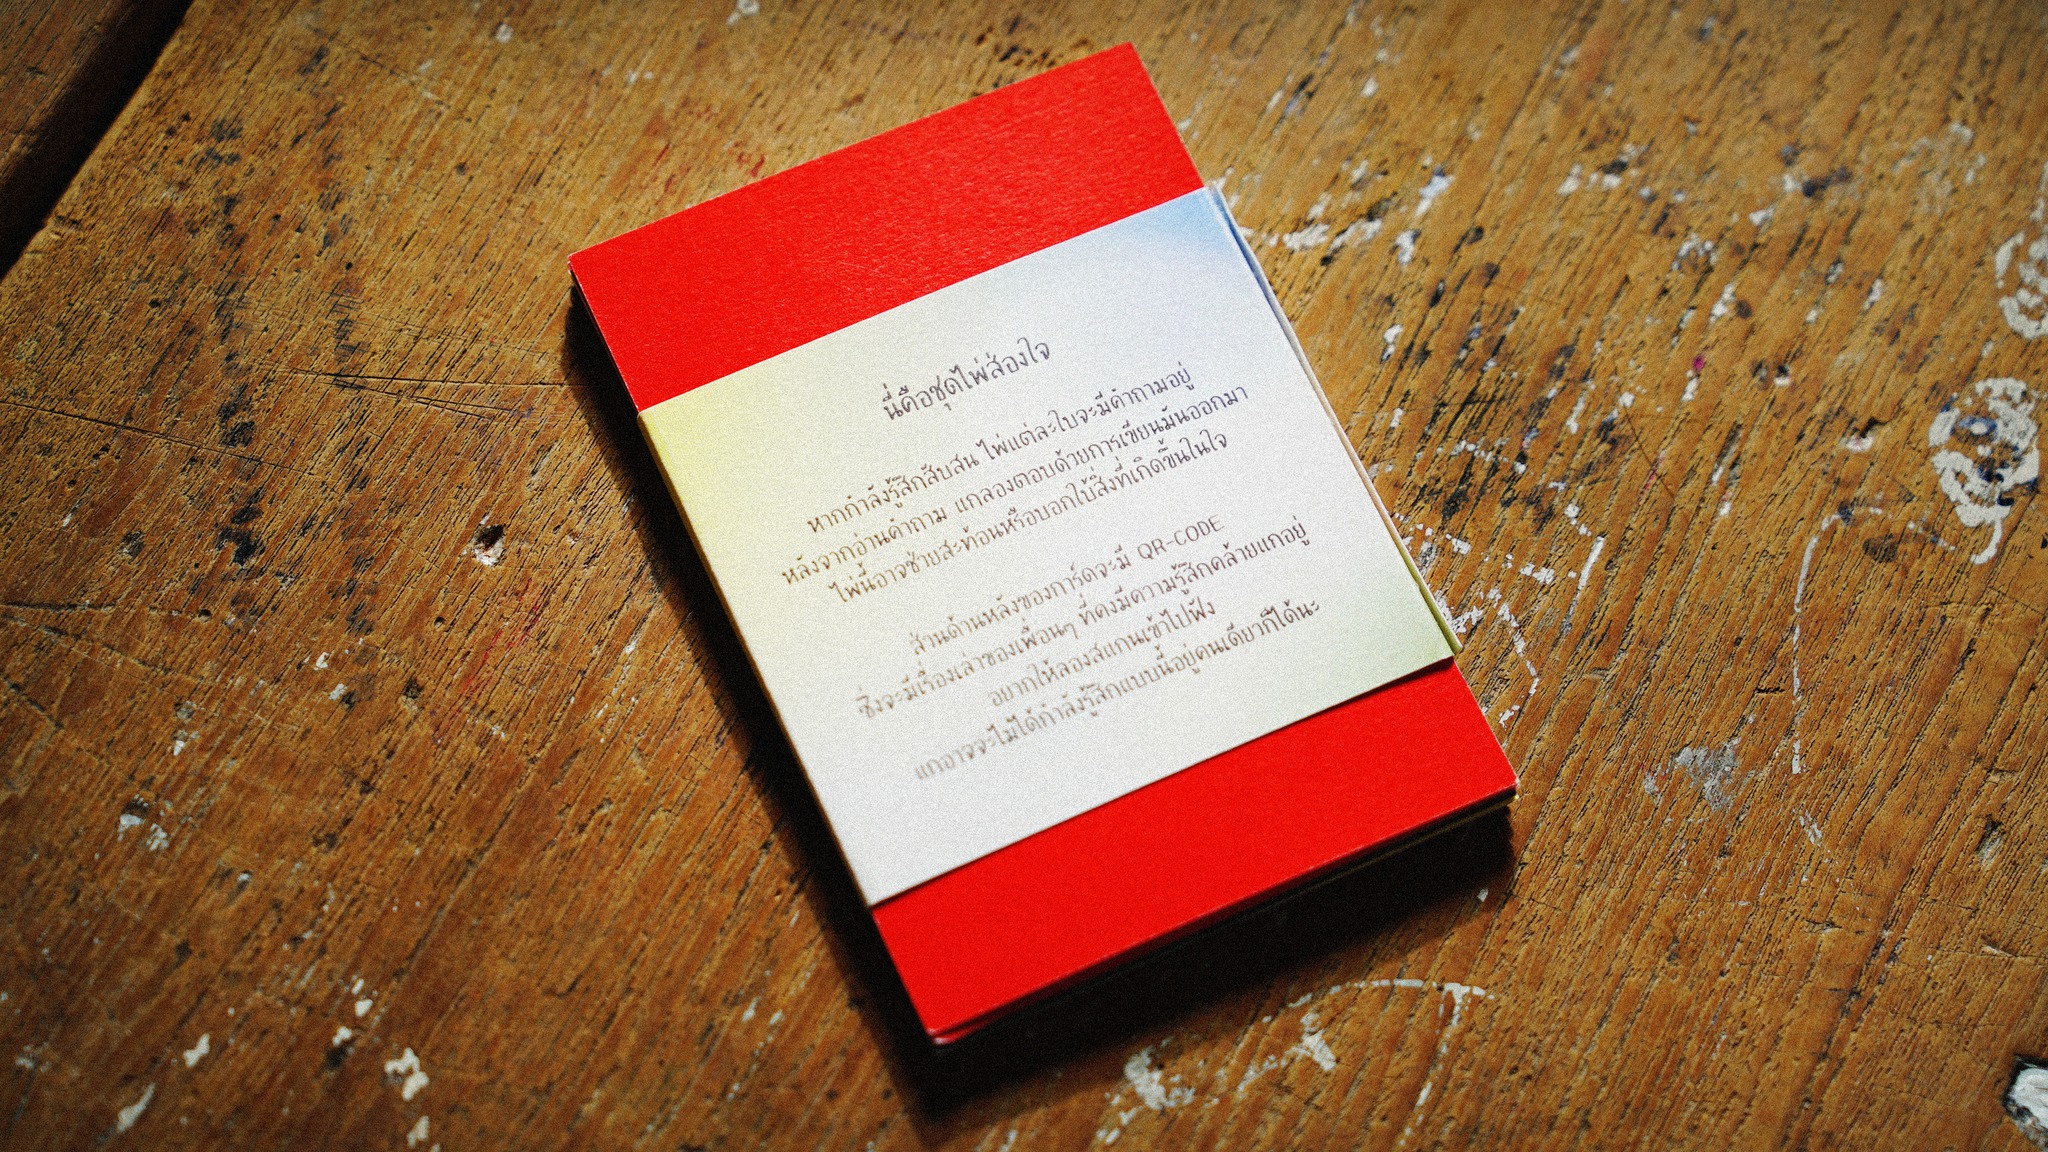 นี่คือชุดไพ่ส่องใจ
หากกำลังรู้สึกสับสน ไพ่แต่ละใบจะมีคำถามอยู่
หลังจากอ่านคำถาม แกลองตอบด้วยการเขียนมันออกมา
ไพ่นี้อาจช่วยสะท้อนหรือบอกใบ้สิ่งที่เกิดขึ้นในใจ
ส่วนด้านหลังของการ์ดจะมี QR-CODE
ซึ่งจะมีเรื่องเล่าของเพื่อนๆ ที่คงมีความรู้สึกคล้ายแกอยู่
อยากให้ลองสแกนเข้าไปฟัง
แกอาจจะไม่ได้กำลังรู้สึกแบบนี้อยู่คนเดียวก็ได้นะ